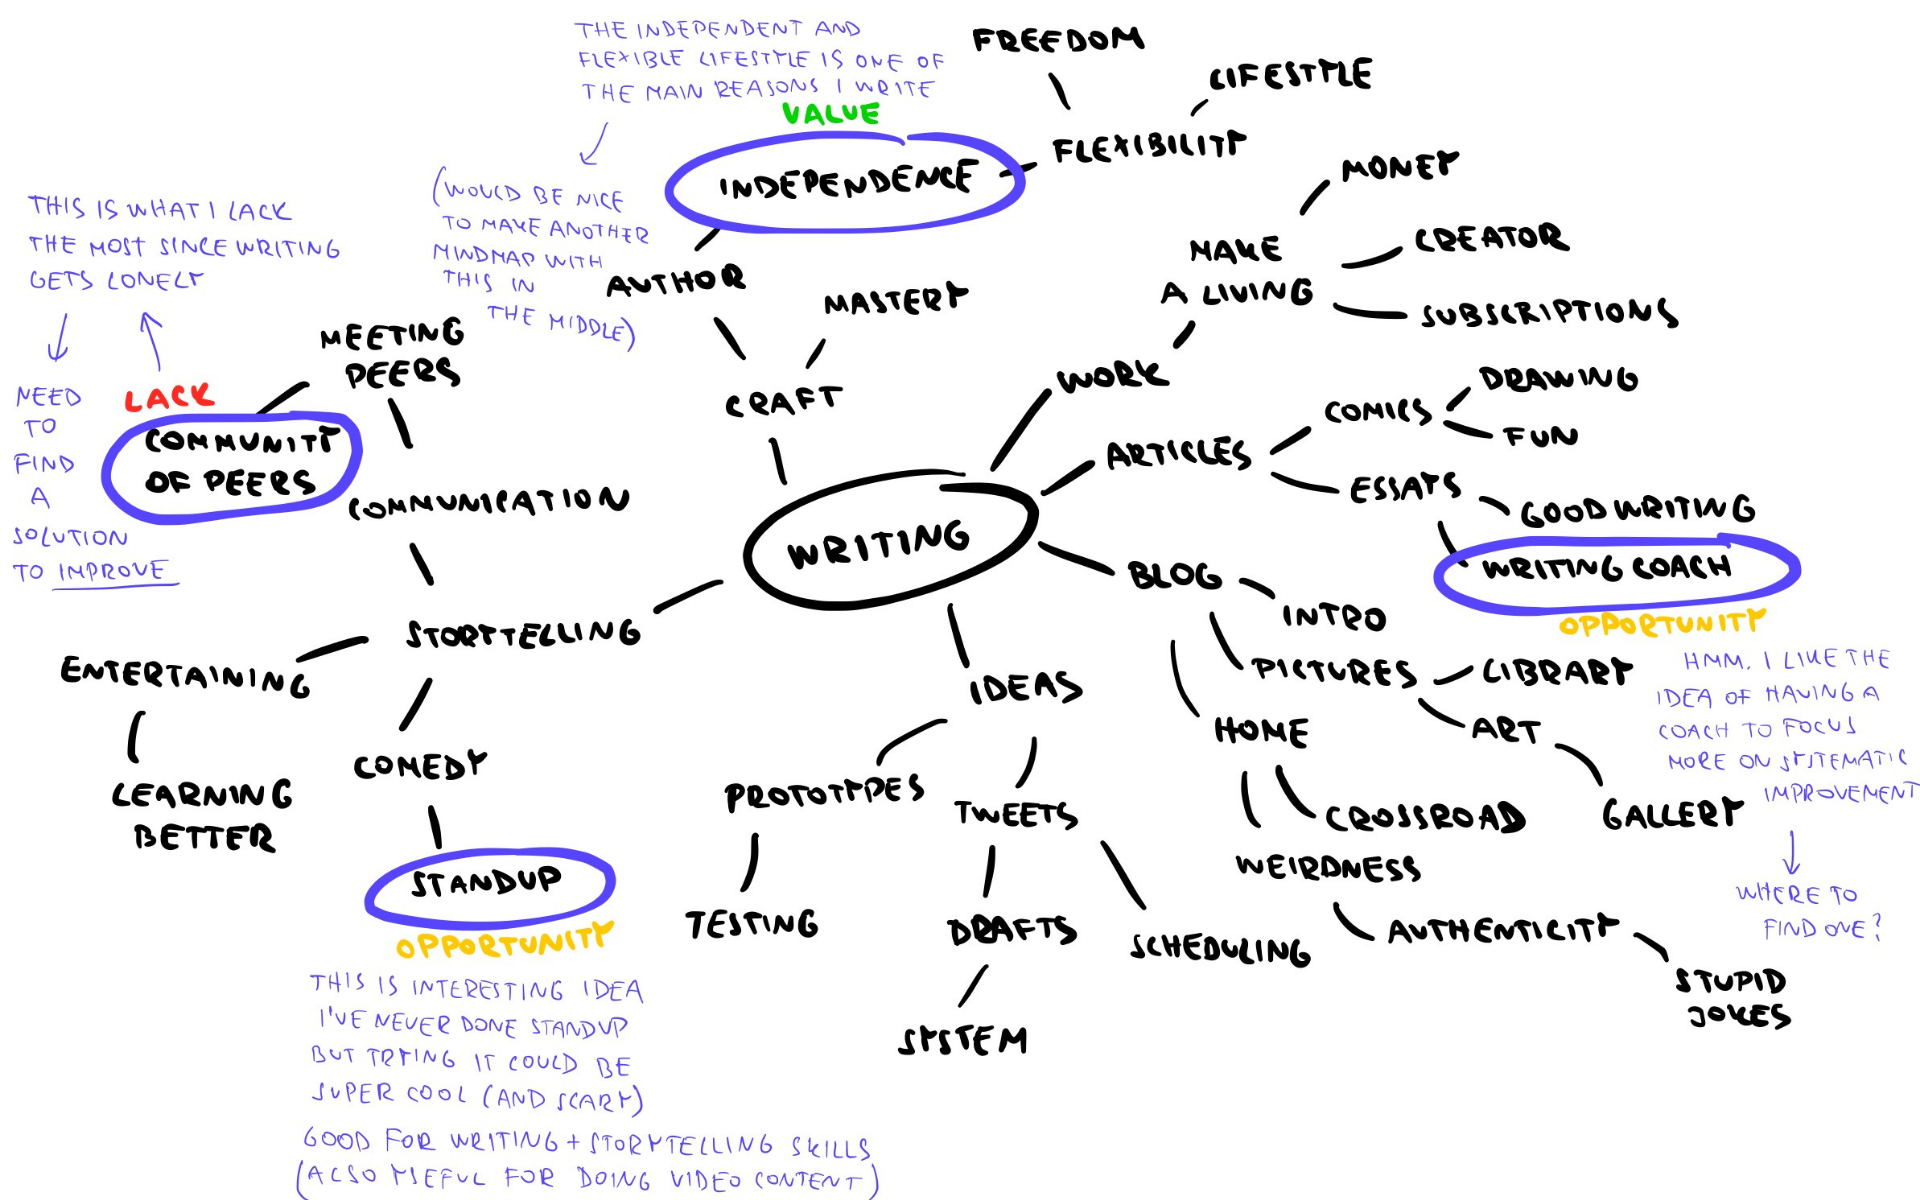 THE INDEPENDENT AND
FLEXIBLE LIFESTYLE IS ONE OF
THE MAIN REASONS I WRITE
VALUE
INDEPENDENCE
FREEDOM
LIFESTYLE
FLEXIBILITY
(WOULD BE NICE
TO MAKE ANOTHER
MINDMAP WITH
THIS IN
THE MIDDLE)
AUTHOR
MASTERY
CRAFT
THIS IS WHAT I LACK
THE MOST SINCE WRITING
GETS LONELY
NEED
TO
FIND
A
SOLUTION
TO IMPROVE
LACK
COMMUNITY
OF PEERS
MEETING
PEERS
COMMUNICATION
STORYTELLING
ENTERTAINING
LEARNING
BETTER
COMEDY
STANDUP
OPPORTUNITY
THIS IS INTERESTING IDEA
I'VE NEVER DONE STANDUP
BUT TRYING IT COULD BE
SUPER COOL (AND SCARY)
GOOD FOR WRITING + STORYTELLING SKILLS
(ALSO USEFUL FOR DOING VIDEO CONTENT)
WRITING
WORK
MAKE
A LIVING
MONEY
CREATOR
SUBSCRIPTIONS
ARTICLES
COMICS
DRAWING
FUN
ESSAYS
GOOD WRITING
WRITING COACH
OPPORTUNITY
HMM, I LIKE THE
IDEA OF HAVING A
COACH TO FOCUS
MORE ON SYSTEMATIC
IMPROVEMENT
WHERE TO
FIND ONE?
BLOG
INTRO
PICTURES
LIBRARY
ART
GALLERY
HOME
CROSSROAD
WEIRDNESS
AUTHENTICITY
STUPID
JOKES
IDEAS
PROTOTYPES
TESTING
TWEETS
DRAFTS
SYSTEM
SCHEDULING